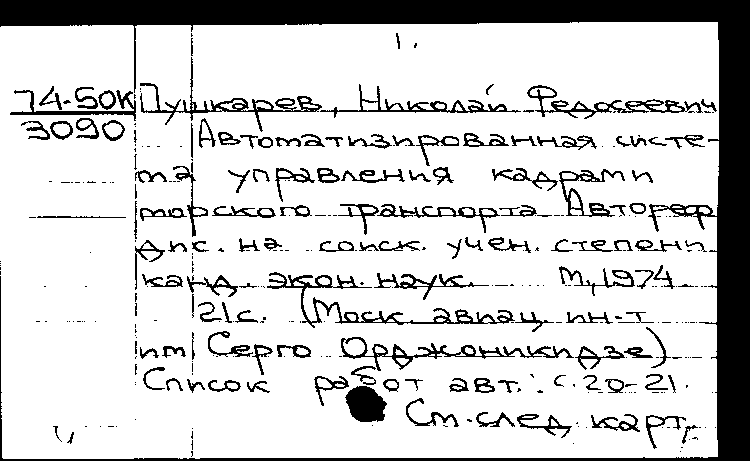 1.
74-50К Пушкарев, Николай Федосеевич
3090
Автоматизированная систе-
ма управления кадрами
морского транспорта. Автореф
дис. на соиск. учен. степени
канд. экон. наук. М., 1974.
21с. (Моск. авиац. ин-т
им. Серго Орджоникидзе)
Список работ авт.: с. 20-21.
См. след. карт.